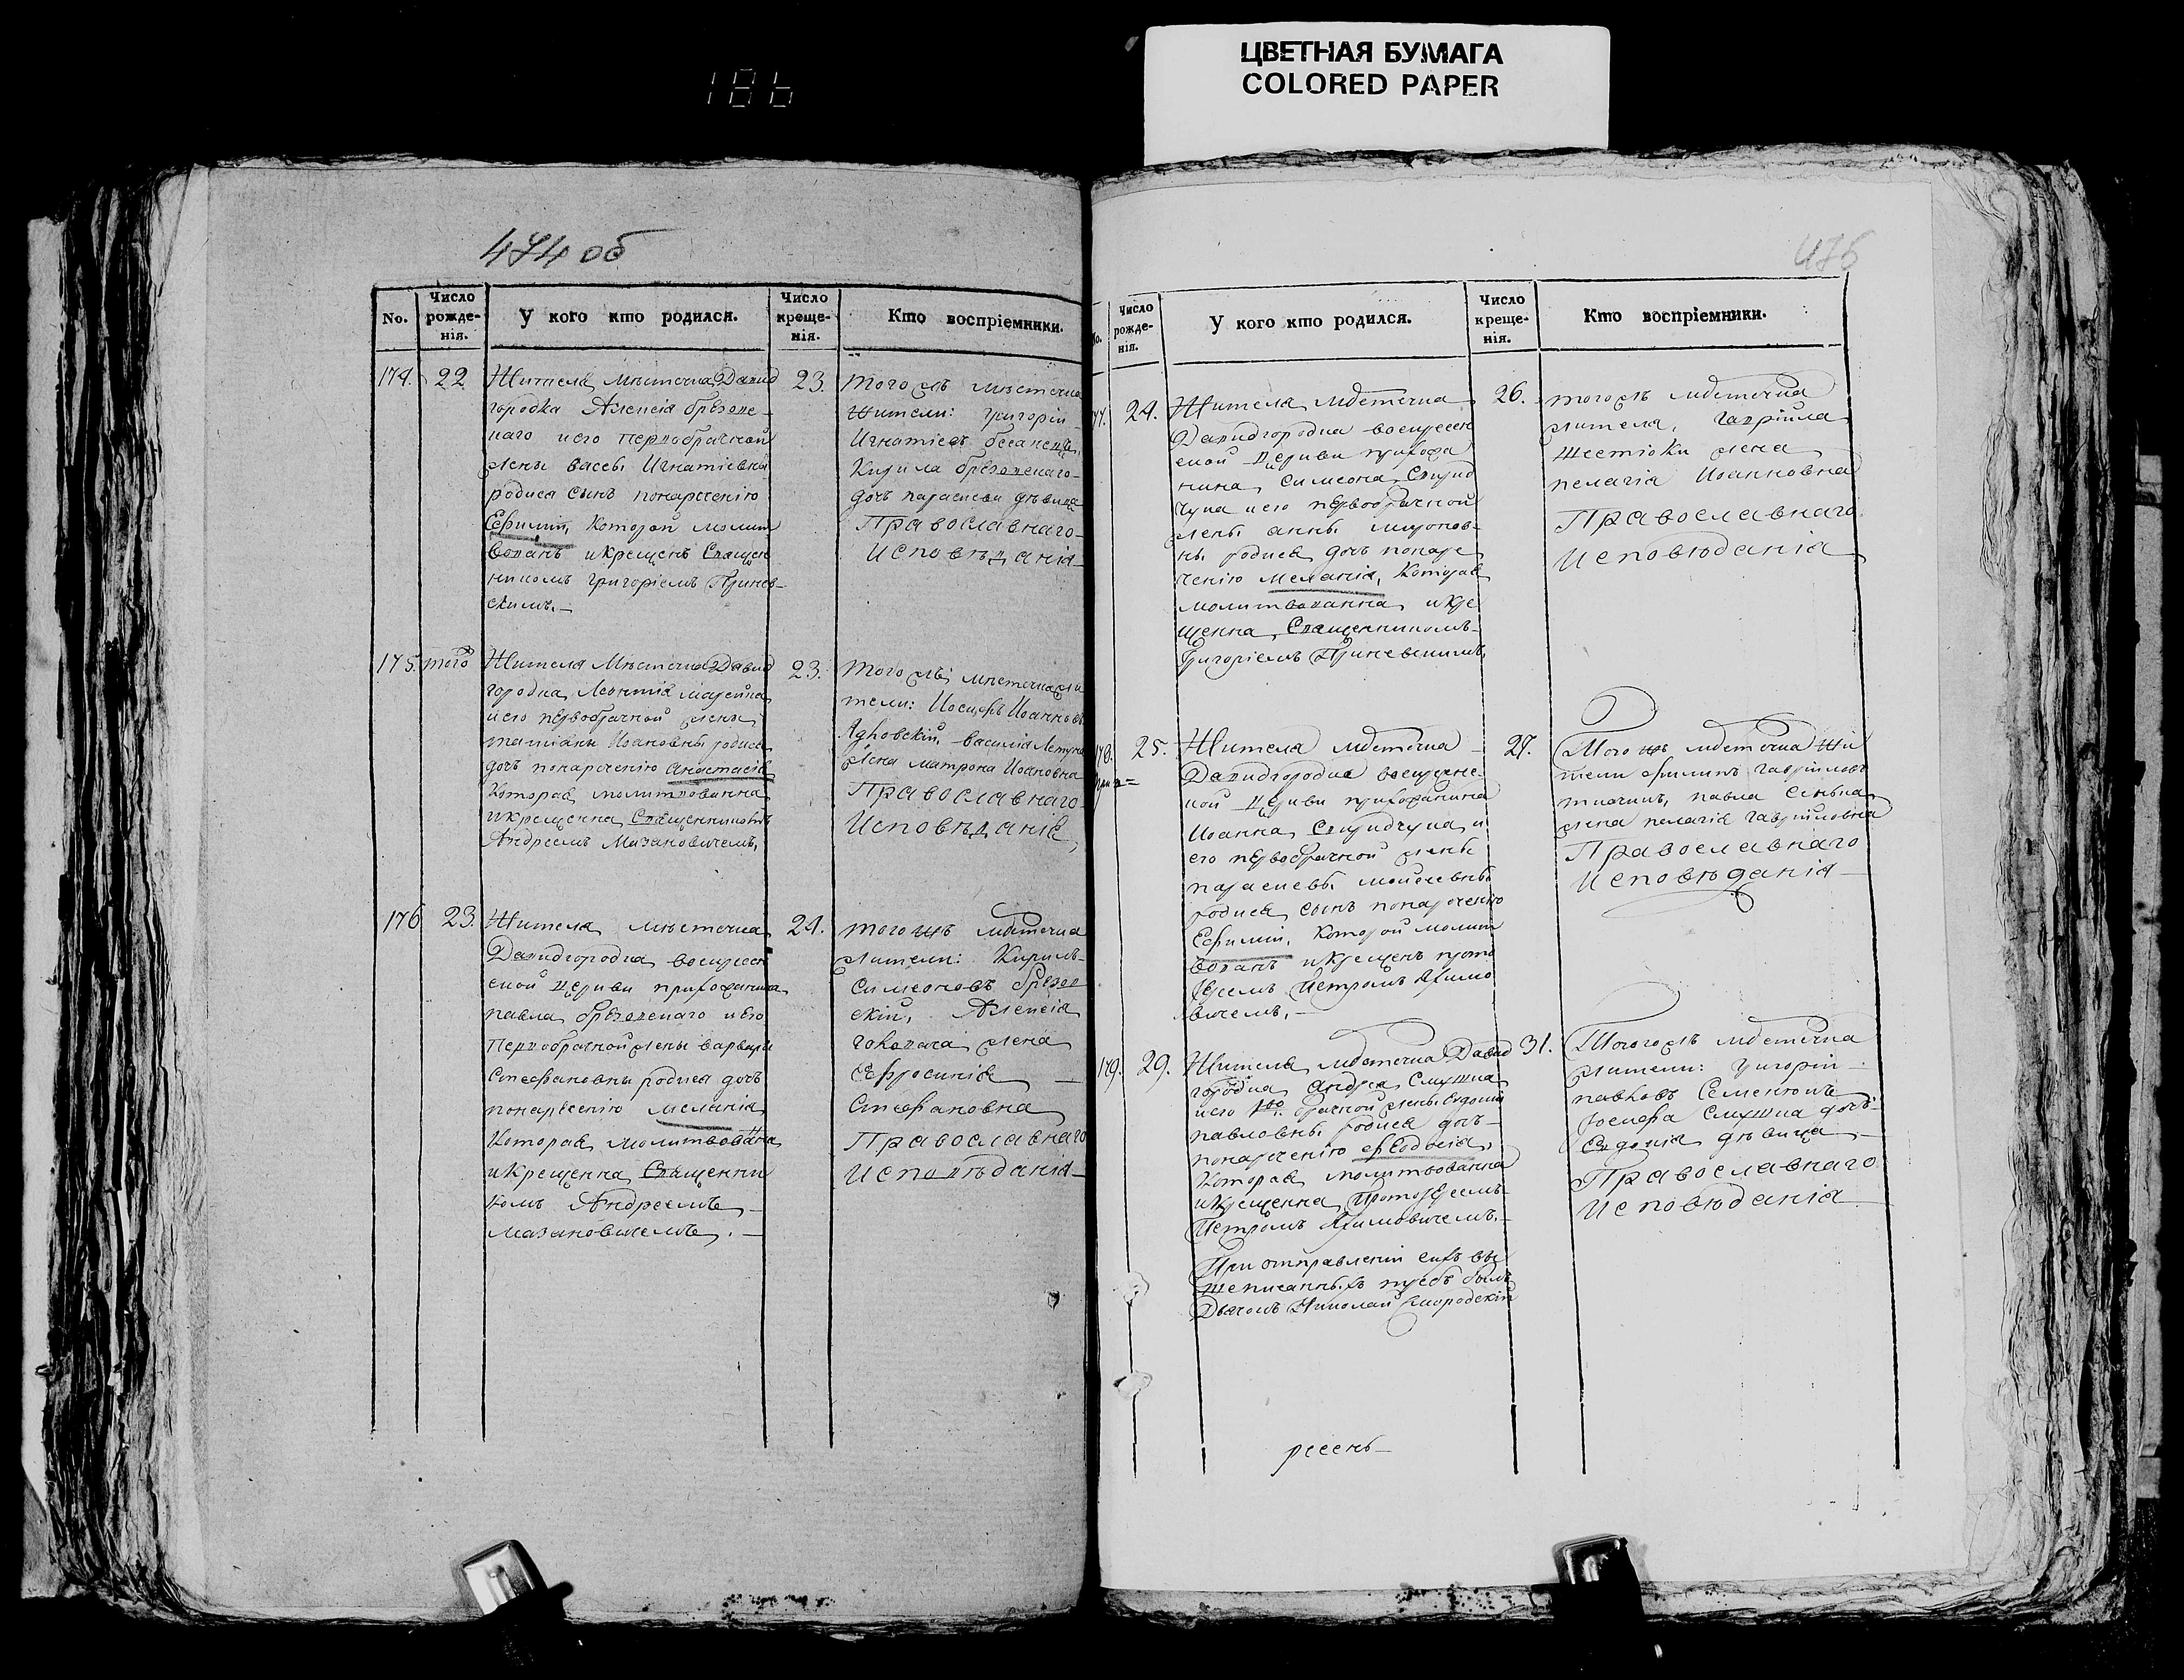 ЦВЕТНАЯ БУМАГА
COLORED PAPER
186
474 об
No.
Число рожде-нія.
У кого кто родился.
Число креще-нія.
Кто воспріемники.
174.
22
Жителя мѣстечка Давид
городка Алексія брезовс-
каго иего первобрачной
жены вассы Игнатіевны
родися сынъ понареченію
Ефимій, Которой молит
вованъ икрещенъ Священ
никомъ Григоріемъ
скимъ.
23.
того жъ мѣстечка
жители: григорій
Игнатіевъ
Кирила брезовскаго
дочъ параскеви дѣвица
Православнаго
Исповѣданія
175.
того
Жителя Мѣстечка Давид
городка, Леонтія
иего первобрачной жены
татіаны Иоановны родися
дочъ понареченію анастасія
Которая молитвованна
икрещенна Священникомъ
Андреемъ Мазановичемъ,
23.
того жъ мѣстечка жи
тели: Иосифъ Иоанновъ
василія
жена матрона Иоановна
Православнаго
Исповѣданія,
176
23.
Жителя мѣстечка
Давидгородка воскресен
ской церкви прихожанина
павла брезовскаго иего
первобрачной жены варвары
Стефановны родися дочъ
понареченію меланія
Которая молитвованна
икрещенна Священни
комъ Андреемъ
мазановичемъ.
24.
того жъ мѣстечка
жители: Кирилъ
симеоновъ брезов
скій, Алексія
жена
Ефросинія
Стефановна
Православнаго
Исповѣданія
476
No.
Число рожде-нія.
У кого кто родился.
Число креще-нія.
Кто воспріемники.
24.
Жителя мѣстечка
Давидгородка воскресен
ской церкви прихожа
нина, симеона
иего первобрачной
жены анны миронов-
ны родися дочъ понаре
ченію меланія, Которая
молитвованна, икре
щенна, Священникомъ
Григоріемъ
26.
того жъ мѣстечка
жителя, гавріила
жена
пелагія Иоанновна
Православнаго
Исповѣданія
178.
25.
Жителя мѣстечка
Давидгородка воскресен-
ской церкви прихожанина
Иоанна и
его первобрачной жены
параскевы моисеевны
родися сынъ понареченію
Ефимій, Которой молит
вованъ икрещенъ прото
іереемъ Петромъ Якимо
вичемъ.
27.
Того жъ мѣстечка жи
тели филипъ гавріиловъ
павла
жена пелагія гавріиловна
Православнаго
Исповѣданія
179.
29.
Жителя мѣстечка Давид
городка, Андрея
иего 1во брачной жены Евдокіи
павловны родися дочъ
понареченію феодосія,
Которая молитвованна
икрещенна, Протоіереемъ
Петромъ Якимовичемъ.
31.
Тогожъ мѣстечка
жители: григорій
павловъ Семенюкъ
Іосифа дочъ
Евдокія дѣвица
Православнаго
Исповѣданія
При отправленіи сихъ вы
шеписанныхъ требъ былъ
Дьячокъ Николай Смородскій